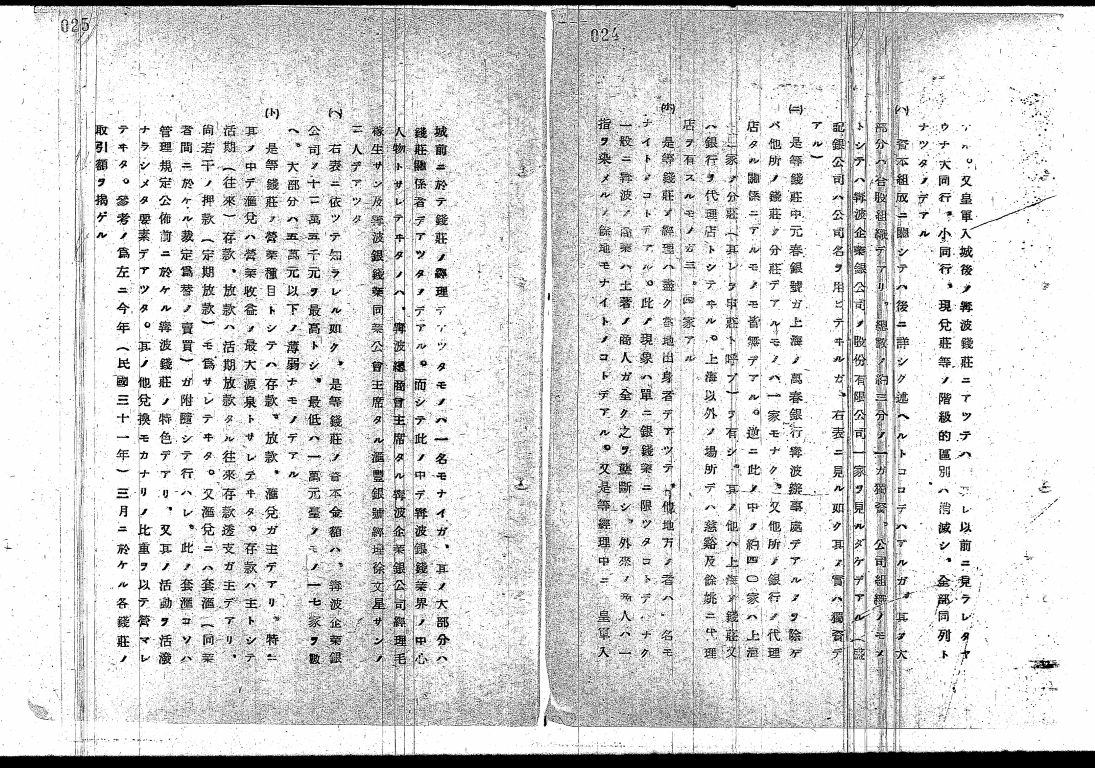 024
又皇軍入城後ノ寗波錢莊ニアツテハ レ以前ニ見ラレタヤ
ウナ大同行。小同行。現兌莊等ノ階級的區別ハ消滅シ。全部同列ト
ナツタノデアル
(ハ) 資本組成ニ關シテハ後ニ詳シク述ヘルトコロデハアルガ其ヲ大
部分ハ合股組織デアリ。總數ノ約三分ノ一ガ獨資。公司組織ノモノ
トシテハ寗波企業銀公司ノ股份有限公司一家ヲ見ルダケデアル(盛
配銀公司ハ公司名ヲ用ヒテヰルガ、右表ニ見ル如ク其ノ實ハ獨資デ
アル)
(ニ) 是等錢莊中元春銀號ガ上海ノ萬春銀行寗波辦事處デアルノヲ除ケ
バ他所ノ錢莊ノ分莊デアルモノハ一家モナク。又他所ノ銀行ノ代理
店タル關係ニアルモノモ皆無デアル。逆ニ此ノ中ノ約四〇家ハ上海
ニ家ノ分莊(其レヲ申莊ト呼ブ)ヲ有シ。其ノ他ハ上海ノ錢莊又
ハ銀行ヲ代理店トシテヰル。上海以外ノ場所デハ慈谿及餘姚ニ代理
店ヲ有スルモノガ三。四家アル
(ホ) 是等錢莊ノ經理ハ盡ク當地出身者デアツテ。他地方ノ者ハ一名モ
ナイトノコトデアル。此ノ現象ハ單ニ銀錢業ニ限ツタコトデハナク
一般ニ寗波ノ商業ハ土著ノ商人ガ全ク之ヲ壟斷シ。外來ノ商人ハ一
指ヲ染メルノ餘地モナイトノコトデアル。又是等經理中ニ 皇軍入
025
城前ニ於テ錢莊ノ經理デアツタモノハ一名モナイガ。其ノ大部分ハ
錢莊關係者デアツタノデアル。而シテ此ノ中デ寗波銀錢業界ノ中心
人物トサレテヰタノハ、寗波總商會主席タル寗波企業銀公司經理毛
稼生サン及寗波銀錢業同業公會主席タル滙豐銀號經理徐文星サンノ
二人デアツタ
(ヘ) 右表ニ依ツテ知ラレル如ク。是等錢莊ノ資本金額ハ。寗波企業銀
公司ノ十二萬五千元ヲ最高トシ。最低ハ一萬元臺ノモノ一七家ヲ數
ヘ。大部分ハ五萬元以下ノ薄弱ナモノデアル
(ト) 是等錢莊ノ營業種目トシテハ存款。放款。滙兌ガ主デアリ。特ニ
其ノ中デ滙兌ハ營業收益ノ最大源泉トサレテヰタ。存款ハ主トシテ
活期(往來)存款。放款ハ活期放款タル往來存款透支ガ主デアリ、
尚若干ノ押款(定期放款)モ爲サレテヰタ。又滙兌ニハ套滙(同業
者間ニ於ケル裁定爲替ノ賣買)ガ附隨シテ行ハレ。此ノ套滙コソハ
管理規定公佈前ニ於ケル寗波錢莊ノ特色デアリ。又其ノ活動ヲ活潑
ナラシメタ要素デアツタ。其ノ他兌換モカナリノ比重ヲ以テ營マレ
テヰタ。參考ノ爲左ニ今年(民國三十一年)三月ニ於ケル各錢莊ノ
取引額ヲ揭ゲル